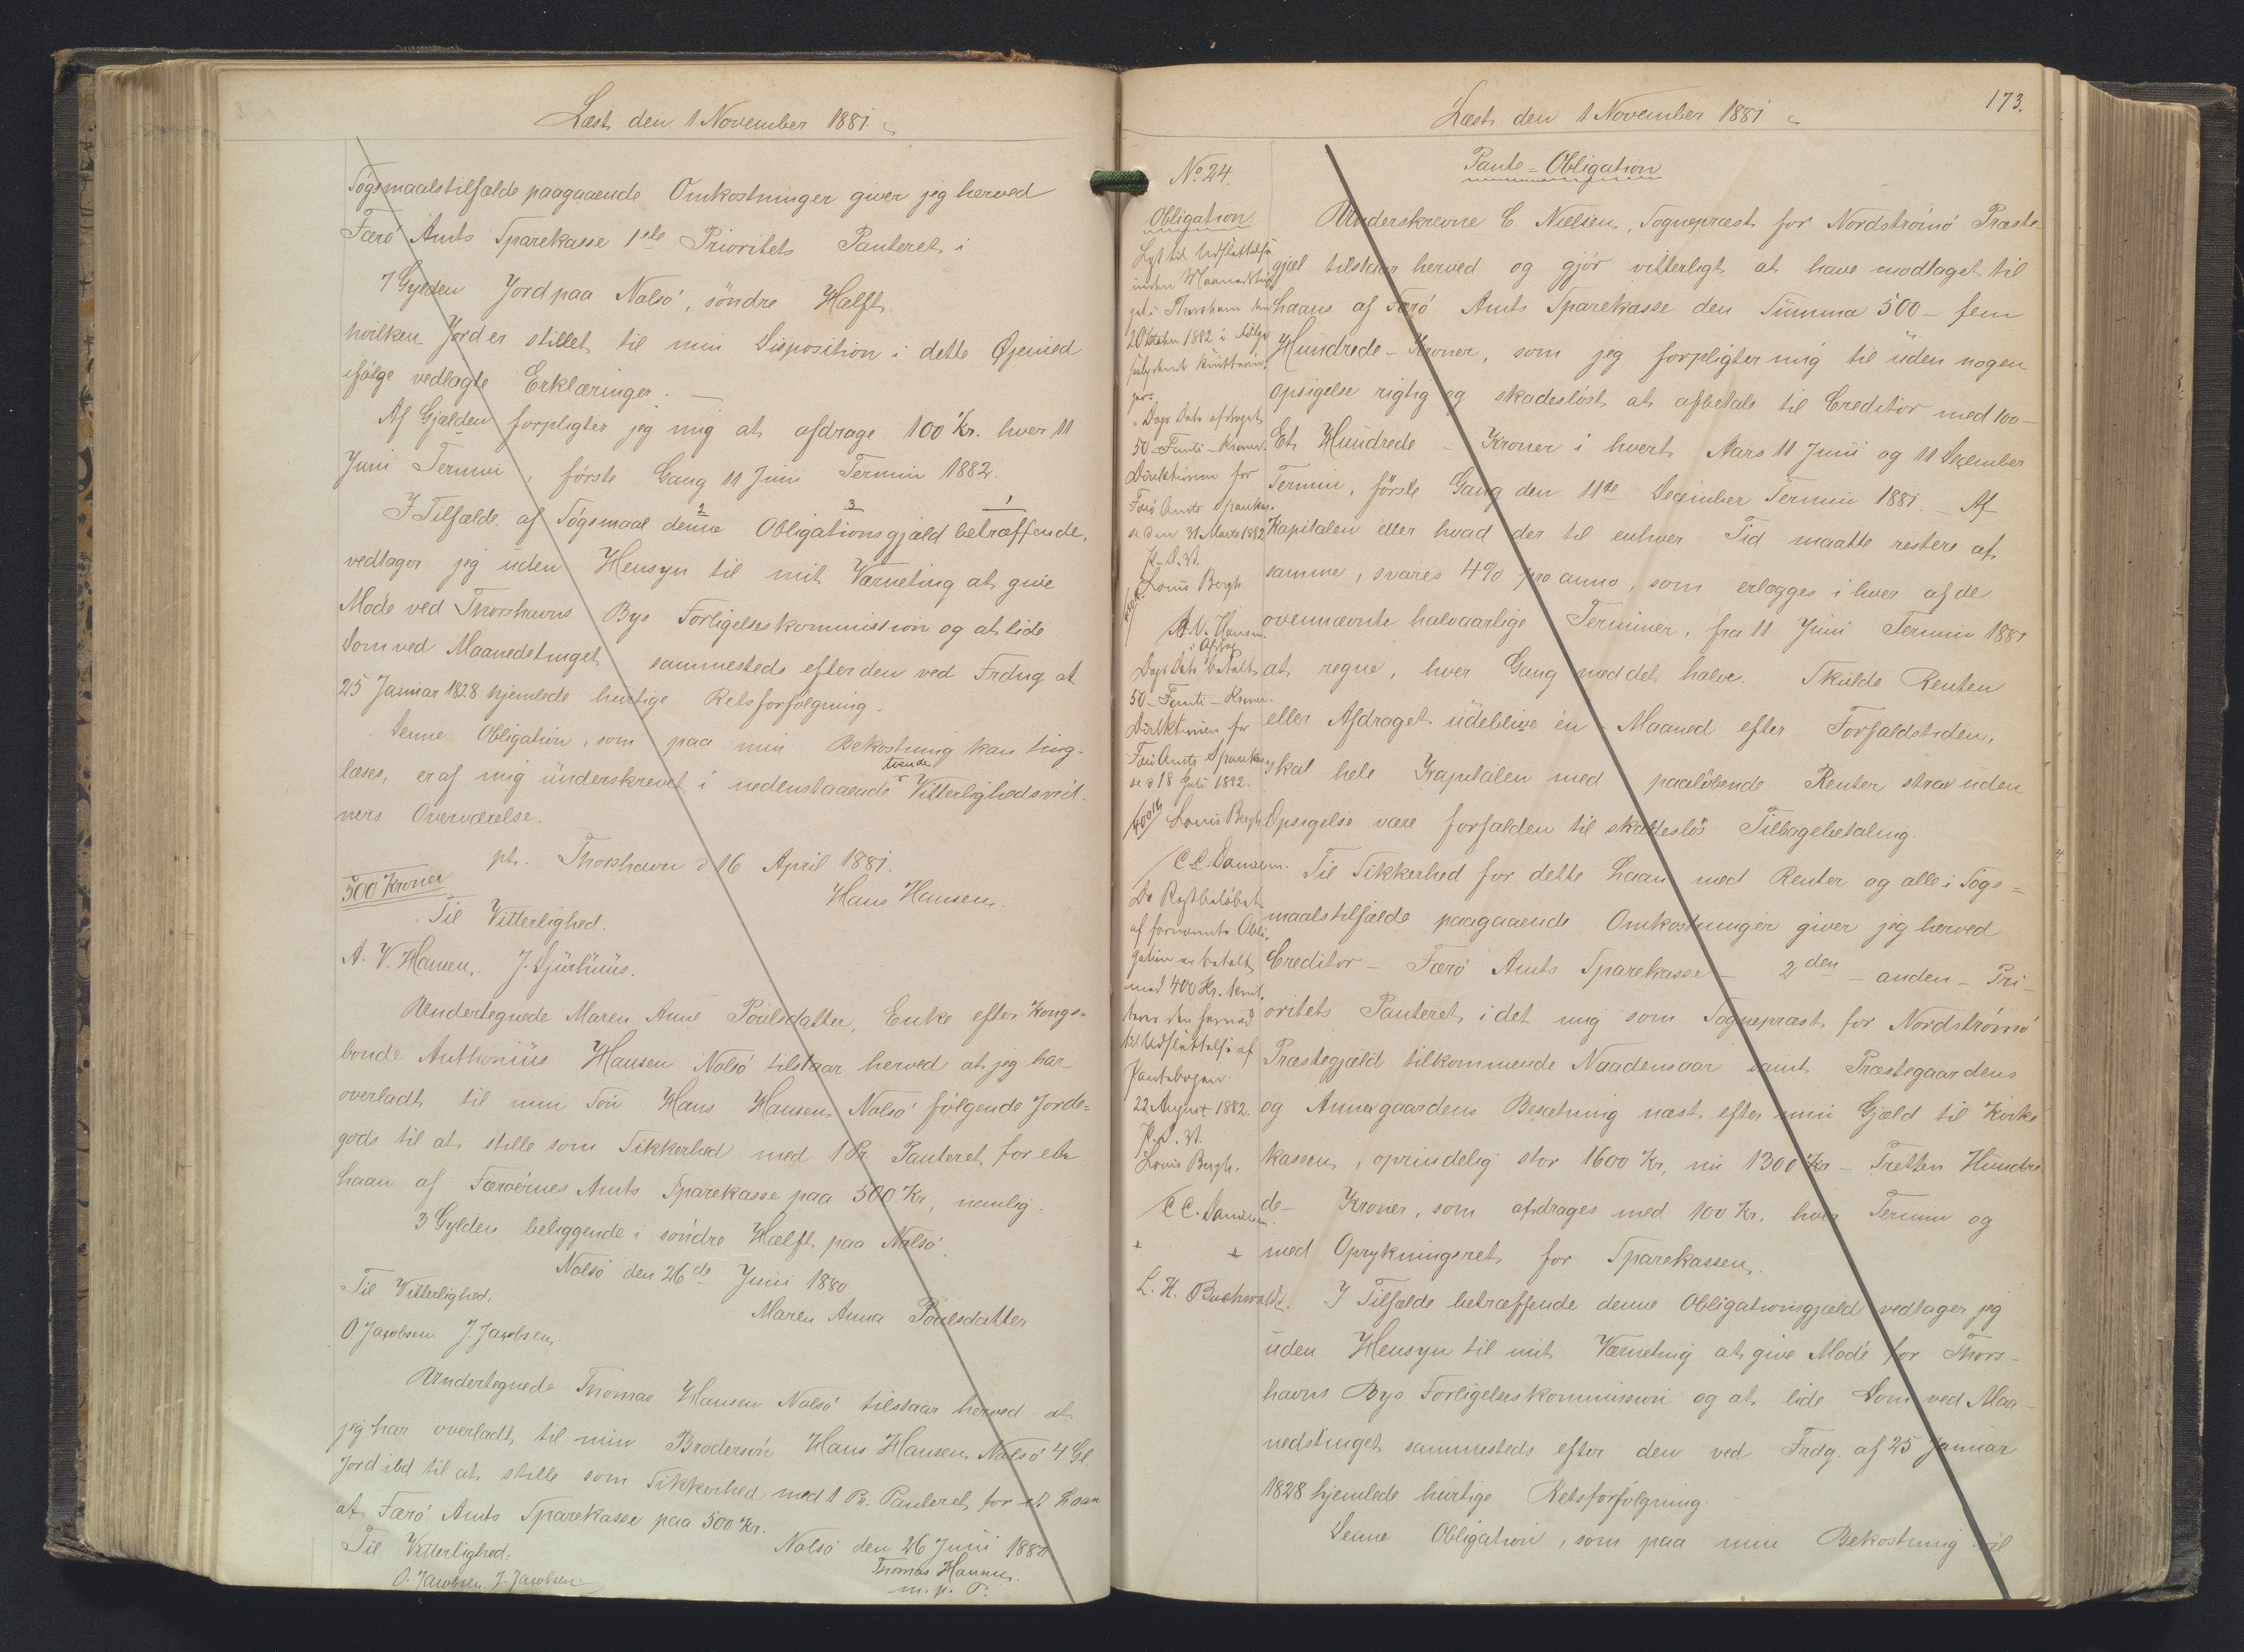 Læst den 1 November 1881.
Søgsmaalstilfælde paagaaende Omkostninger giver jeg herved
Færö Amts Sparekasse 1ste Prioritets Panteret i
7 Gylden Jord paa Nolsö, söndre Hælft.
hvilken Jord er stillet til min Disposition i dette Øjemed
ifölge vedlagte Erklæringer.
Af Gjælden forpligter jeg mig at afdrage 100 Kr. hver 11
Juni Termin, förste Gang 11 Juni Termin 1882.
I Tilfælde af Sögsmaal denne Obligationsgjæld betræffende,
vedtager jeg uden Hensyn til mit Værneting at give
Möde ved Thorshavns Bys Forligelseskommission og at lide
Dom ved Maanedstinget sammesteds efter den ved Frdng at
25 Januar 1828 hjemlede hurtige Retsforfölgning.
Denne Obligation, som paa min Bekostning kan ting-
læses, er af mig underskrevet i nedenstaaende tvende Vitterlighedsvid-
ners Overværelse.
pt. Thorshavn d 16 April 1881.
500 Kroner
Hans Hansen.
Til Vitterlighed.
A. V. Hansen. J. Djurhuus.
Undertegnede Maren Anne Poulsdatter, Enke efter Kongs-
bonde Anthonius Hansen Nolsö tilstaar herved at jeg har
overladt til min Sön Hans Hansen Nolsö fölgende Jorde-
gods til at stille som Sikkerhed med 1 Pr. Panteret for et
Laan af Færöernes Amts Sparekasse paa 500 Kr, nemlig.
3 Gylden beliggende i söndre Hælft paa Nolsö.
Nolsö den 26de Juni 1880.
Til Vitterlighed:
Maren Anna Poulsdatter
O. Jacobsen J. Jacobsen.
Undertegnede Thomas Hansen Nolsö tilstaar herved at
jeg har overladt til min Brodersön Hans Hansen Nolsö 4 Gl.
Jord ibd til at stille som Sikkerhed med 1 Pr. Panteret for et Laan
af Færö Amts Sparekasse paa 500 Kr.
Nolsö den 26 Juni 1880
Til Vitterlighed:
Thomas Hansen.
O. Jacobsen J. Jacobsen
m. p. P.
173.
Læst den 1 November 1881
No. 24.
Obligation.
Lyst til Udslettelse
inden Maanedstin-
get i Thorshavn den
1882 i Fölge
Kvitterin-
ger.
Dags Dato afdraget
50 - Femti - Kroner.
Direktionen for
Færö Amts Sparekas-
se den 31 Marts 1882
P. D. V.
Louis Bergh
A. V. Hansen.
i Afdrag
Dags Dato betalt
50 - Femti - Kroner.
Direktionen for
Færö Amts Sparekas-
se d 18 Juli 1882.
Louis Bergh
C. C. Danielsen.
Da Restbelöbet
af fornævnte Obli-
gation er betalt
med 400 Kr. kvit-
teres den hermed
til Udslettelse af
Pantebogen.
22 August 1882.
P. D. V.
Louis Bergh.
C. C. Danielsen.
L. H. Buchwaldt.
Pante-Obligation
Underskrevne C Nielsen, Sognepræst for Nordströmö Præste-
gjæl tilstaar herved og gjör vitterligt at have modtaget til
Laans af Færö Amts Sparekasse den Summa 500 - fem
Hundrede - Kroner, som jeg forpligter mig til uden nogen
Opsigelse rigtig og skadeslöst at afbetale til Creditor med 100 -
Et Hundrede - Kroner i hvert Aars 11 Juni og 11 December
Termin, förste Gang den 11te December Termin 1881. - Af
Kapitalen eller hvad der til enhver Tid maatte restere af
samme, svares 4% pro anno, som erlægges i hver af de
ovennævnte halvaarlige Terminer, fra 11 Juni Termin 1881
at regne, hver Gang med det halve. Skulde Renten
eller Afdraget udeblive én - Maaned efter Forfaldstiden,
skal hele Kapitalen med paalöbende Renter strax uden
Opsigelse være forfalden til skadeslös Tilbagebetaling.
Til Sikkerhed for dette Laan med Renter og alle i Sögs-
maalstilfælde paagaaende Omkostninger giver jeg herved
Creditor - Færö Amts Sparekasse - 2den - anden - Pri-
oritets Panteret i det mig som Sognepræst for Nordströmö
Præstegjæld tilkommende Naadensaar samt Præstegaardens
og Annexgaardens Besætning næst efter min Gjæld til Kirke-
kassen, oprindelig stor 1600 Kr, nu 1300 Kr - Tretten Hundre-
de - Kroner, som afdrages med 100 Kr. hver Termin og
med Oprykningsret for Sparekassen.
I Tilfælde betræffende denne Obligationsgjæld vedtager jeg
uden Hensyn til mit Værneting at give Möde for Thors-
havns Bys Forligelseskommission og at lide Dom ved Maa-
nedstinget sammesteds efter den ved Frdg. af 25 Januar
1828 hjemlede hurtige Retsforfölgning.
Denne Obligation, som paa min Bekostning vil